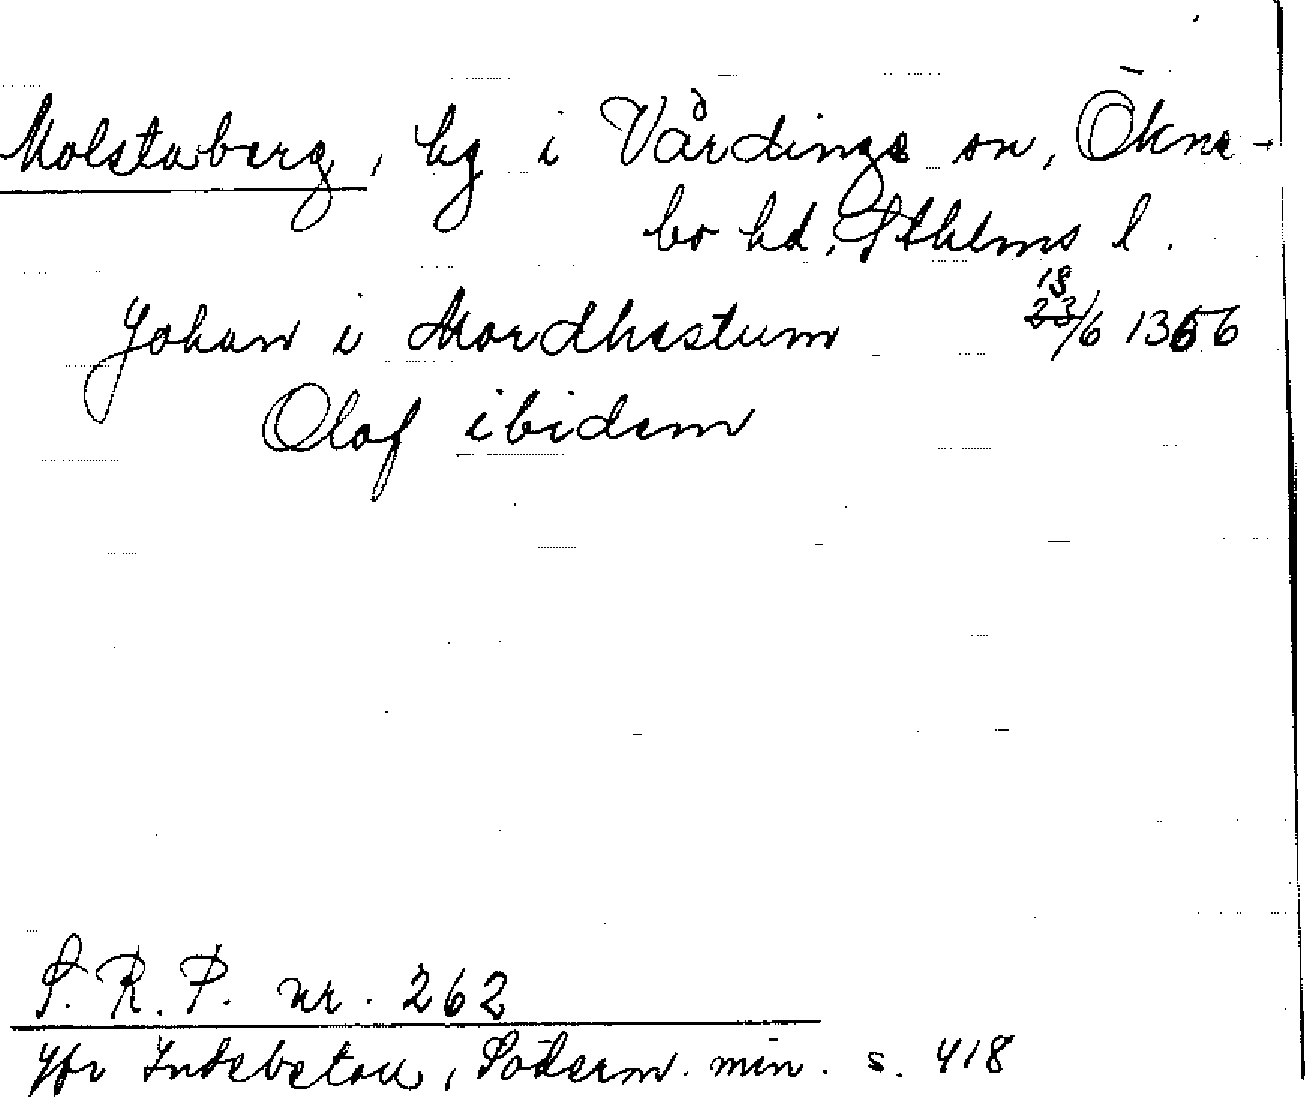 Molstaberg, hg i Vårdinge sn, Ökne-
bo hd, Sthlms l.
Johan i Mordhastum 18 23/6 1356
Olaf ibidem
S. R. P. nr. 262
Jfr Indebetou, Söderm. min. s. 418